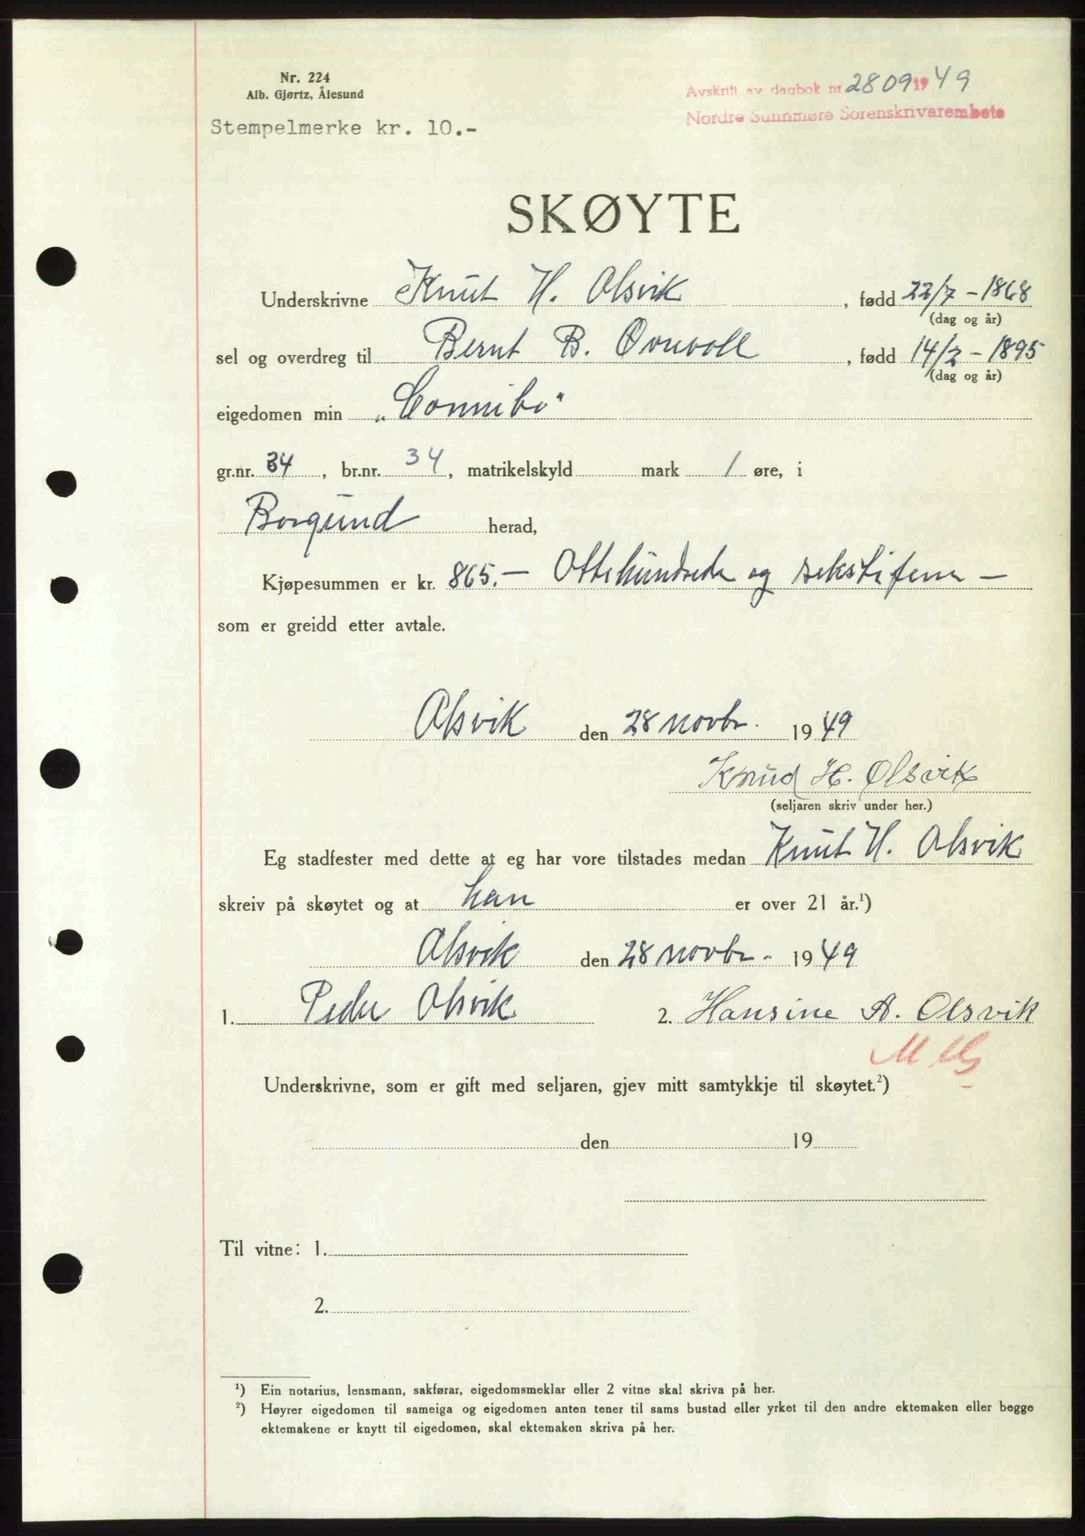 Nr. 224
Alb. Gjørtz, Ålesund
Stempelmerke kr. 10.-
Avskrift av dagbok nr 2809 1949
Nordre Sunnmøre Sorenskrivarembete
SKØYTE
Underskrivne Knut H. Olsvik, fødd 22/7 - 1868
(dag og år)
sel og overdreg til Bernt B. Ovuvoll, fødd 14/2 - 1895
(dag og år)
eigedomen min „Connibo"
gr.nr. 34, br.nr. 34, matrikelskyld mark 1 øre, i
Borgund herad,
Kjøpesummen er kr. 865.- Ottehundrede og sekstifem -
som er greidd etter avtale.
Olsvik den 28 novbr. 1949
Knud H. Olsvik
(seljaren skriv under her.)
Eg stadfester med dette at eg har vore tilstades medan Knut H. Olsvik
skreiv på skøytet og at han er over 21 år.¹)
Olsvik den 28 novbr. 1949
1. Peder Olsvik 2. Hansine A. Olsvik
Underskrivne, som er gift med seljaren, gjev mitt samtykkje til skøytet.²)
den 19
Til vitne: 1.
2.
¹) Ein notarius, lensmann, sakførar, eigedomsmeklar eller 2 vitne skal skriva på her.
²) Høyrer eigedomen til sameiga og eigedomen anten tener til sams bustad eller yrket til den andre ektemaken eller begge
ektemakene er knytt til eigedomen, skal ektemaken skriva på her.